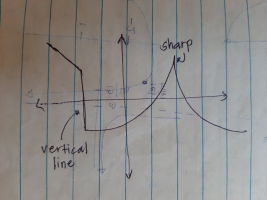 sharp
vertical
line